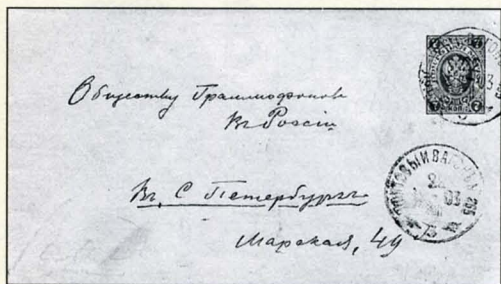 Обществу Граммофоновъ
въ Россіи
Въ С Петербургъ
Морская, 49
ПОЧТОВЫЙ ВАГОНЪ
03